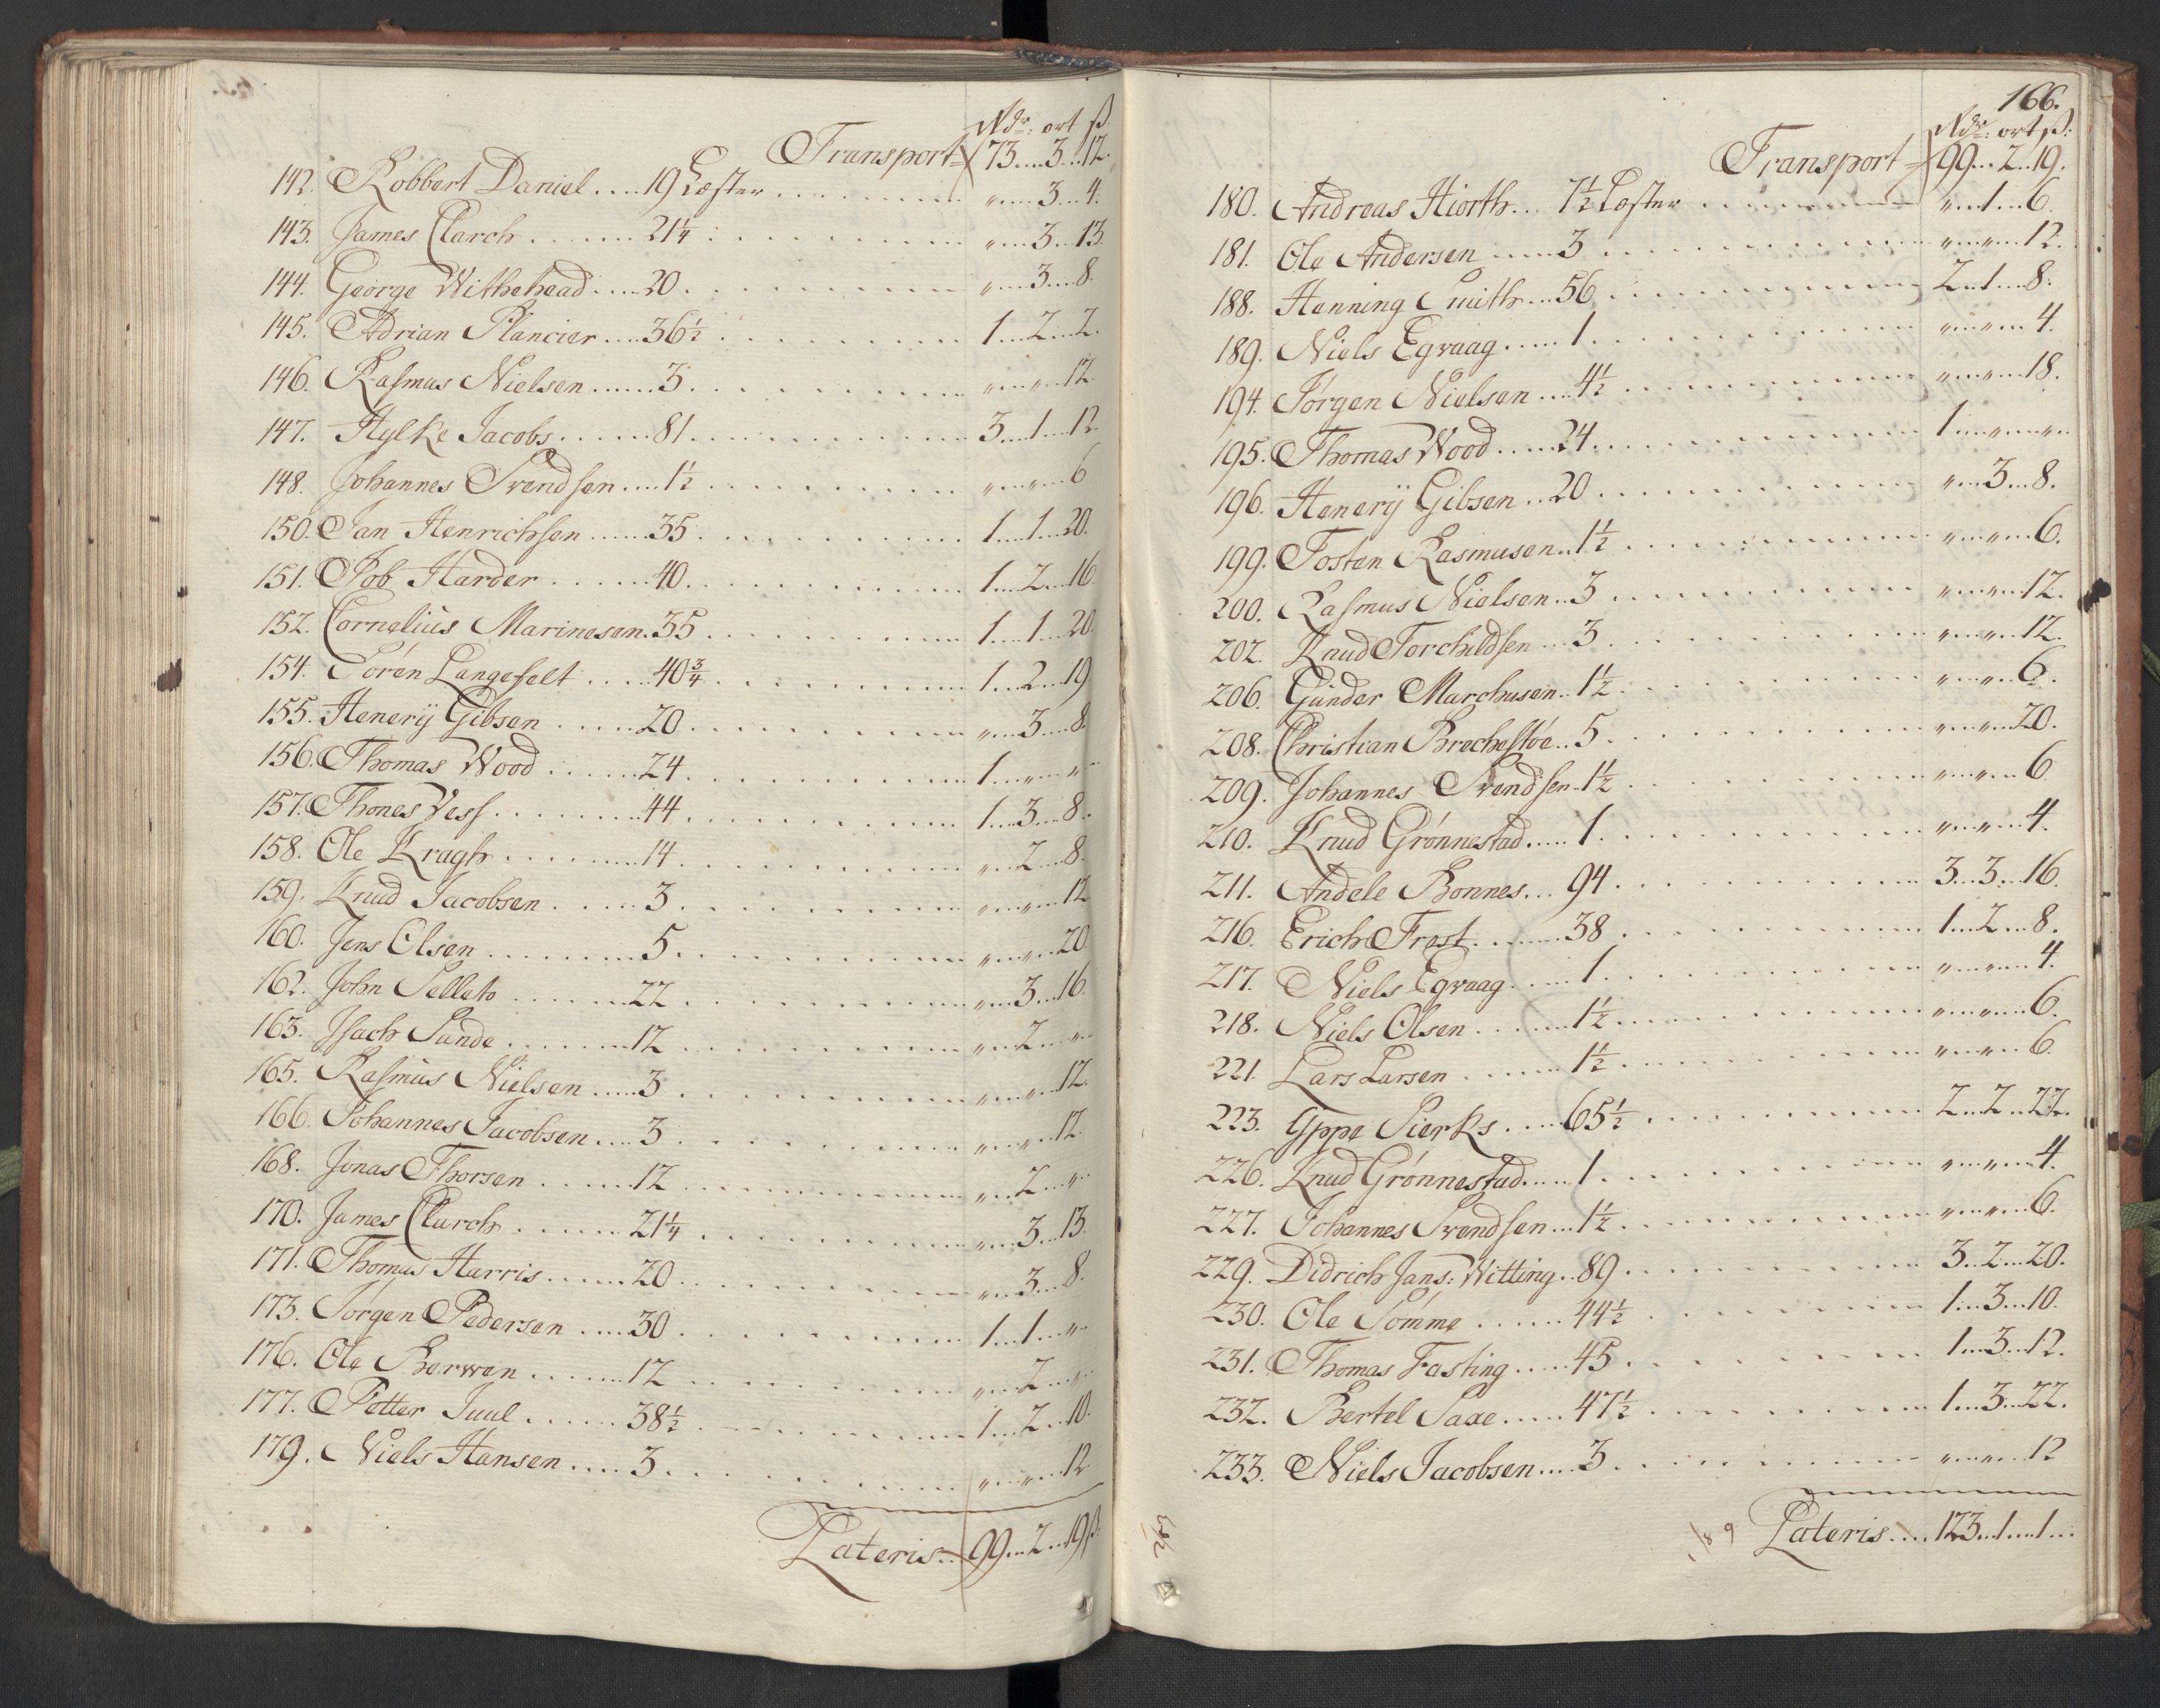 Rdr: ort ß.
Transport 73....3...12.
142. Robbert Daniel....19 Læster........ „....3...4.
143. James Clarch.......21¼.......... „....3...13.
144. George Withehead.....20.......... „....3....8.
145. Adrian Plancier....36½.......... 1....2....2.
146. Rasmus Nielsen......3.......... „....„...12.
147. Hylke Jacobs.......81.......... 3....1....12.
148. Johannes Svendsen....1½.......... „....„....6
150. Jan Henrichsen......35.......... 1....1....20.
151. Job Harder.......40.......... 1....2....16.
152. Cornelius Marinesen.35.......... 1....1....20.
154. Sören Langefelt.....40¾.......... 1....2...19.
155. Henerÿ Gibsen.....20.......... „....3....8.
156. Thomas Wood.......24.......... 1....„....„
157. Thones Vess.........44.......... 1....3....8.
158. Ole Kragh.........14.......... „....2....8.
159. Knud Jacobsen.....3.......... „....„...12
160. Jens Olsen.........5.......... „....„...20.
162. John Selleto.......22.......... „....3...16.
163. Isach Sunde........12.......... „....2....„
165. Rasmus Nielsen.....3.......... „....„...12.
166. Johannes Jacobsen....3.......... „....„...12.
168. Jonas Thorsen.....12.......... „....2....„
170. James Clarch.......21¼.......... „....3...13.
171. Thomas Harris......20.......... „....3....8.
173. Jörgen Pedersen.....30.......... 1....1....„
176. Ole Berwen.......12.......... „....2....„
177. Petter Juul......38½.......... 1....2...10.
179. Niels Hansen....3.......... „....„...12
Lateris...99...2...19ß.
166.
Rdr: ort ß:
Transport 99....2...19.
180. Andreas Hiorth... 7½ Læster........ „....1....6.
181. Ole Andersen.....3.......... „....„...12.
188. Henning Smith...56.......... 2...1....8.
189. Niels Egraag.....1.......... „....„....4.
194. Jörgen Nielsen....4½.......... „....„...18.
195. Thomas Wood.....24.......... 1....„....„
196. Henerÿ Gibsen..20.......... „....3...8.
199. Tosten Rasmusen..1½.......... „....„...6.
200. Rasmus Nielsen..3.......... „....„...12.
202. Knud Torchildsen...3.......... „....„...12.
206. Gunder Marchusen..1½.......... „....„...6.
208. Christian Brechestöe..5.......... „....„...20.
209. Johannes Svendsen..1½.......... „....„...6.
210. Knud Grönnestad.....1.......... „....„...4.
211. Andele Bonnes...94.......... 3...3...16.
216. Erich Frost........38.......... 1....2....8.
217. Niels Egraag.....1.......... „....„...4.
218. Niels Olsen.......1½.......... „....„...6.
221. Lars Larsen.......1½.......... „....„...6.
223. Yppe Sierks....65½.......... 2...2...22.
226. Knud Grönnestad.....1.......... „....„...4.
227. Johannes Svendsen...1½.......... „....„...6.
229. Didrich Jans: Witting..89.......... 3...2...20.
230. Ole Sömme......44½.......... 1....3...10.
231. Thomas Fasting.....45.......... 1....3...12.
232. Bertel Saxe.....47½.......... 1....3...22.
233. Niels Jacobsen....3.......... „....„...12
Lateris....123...1....1...